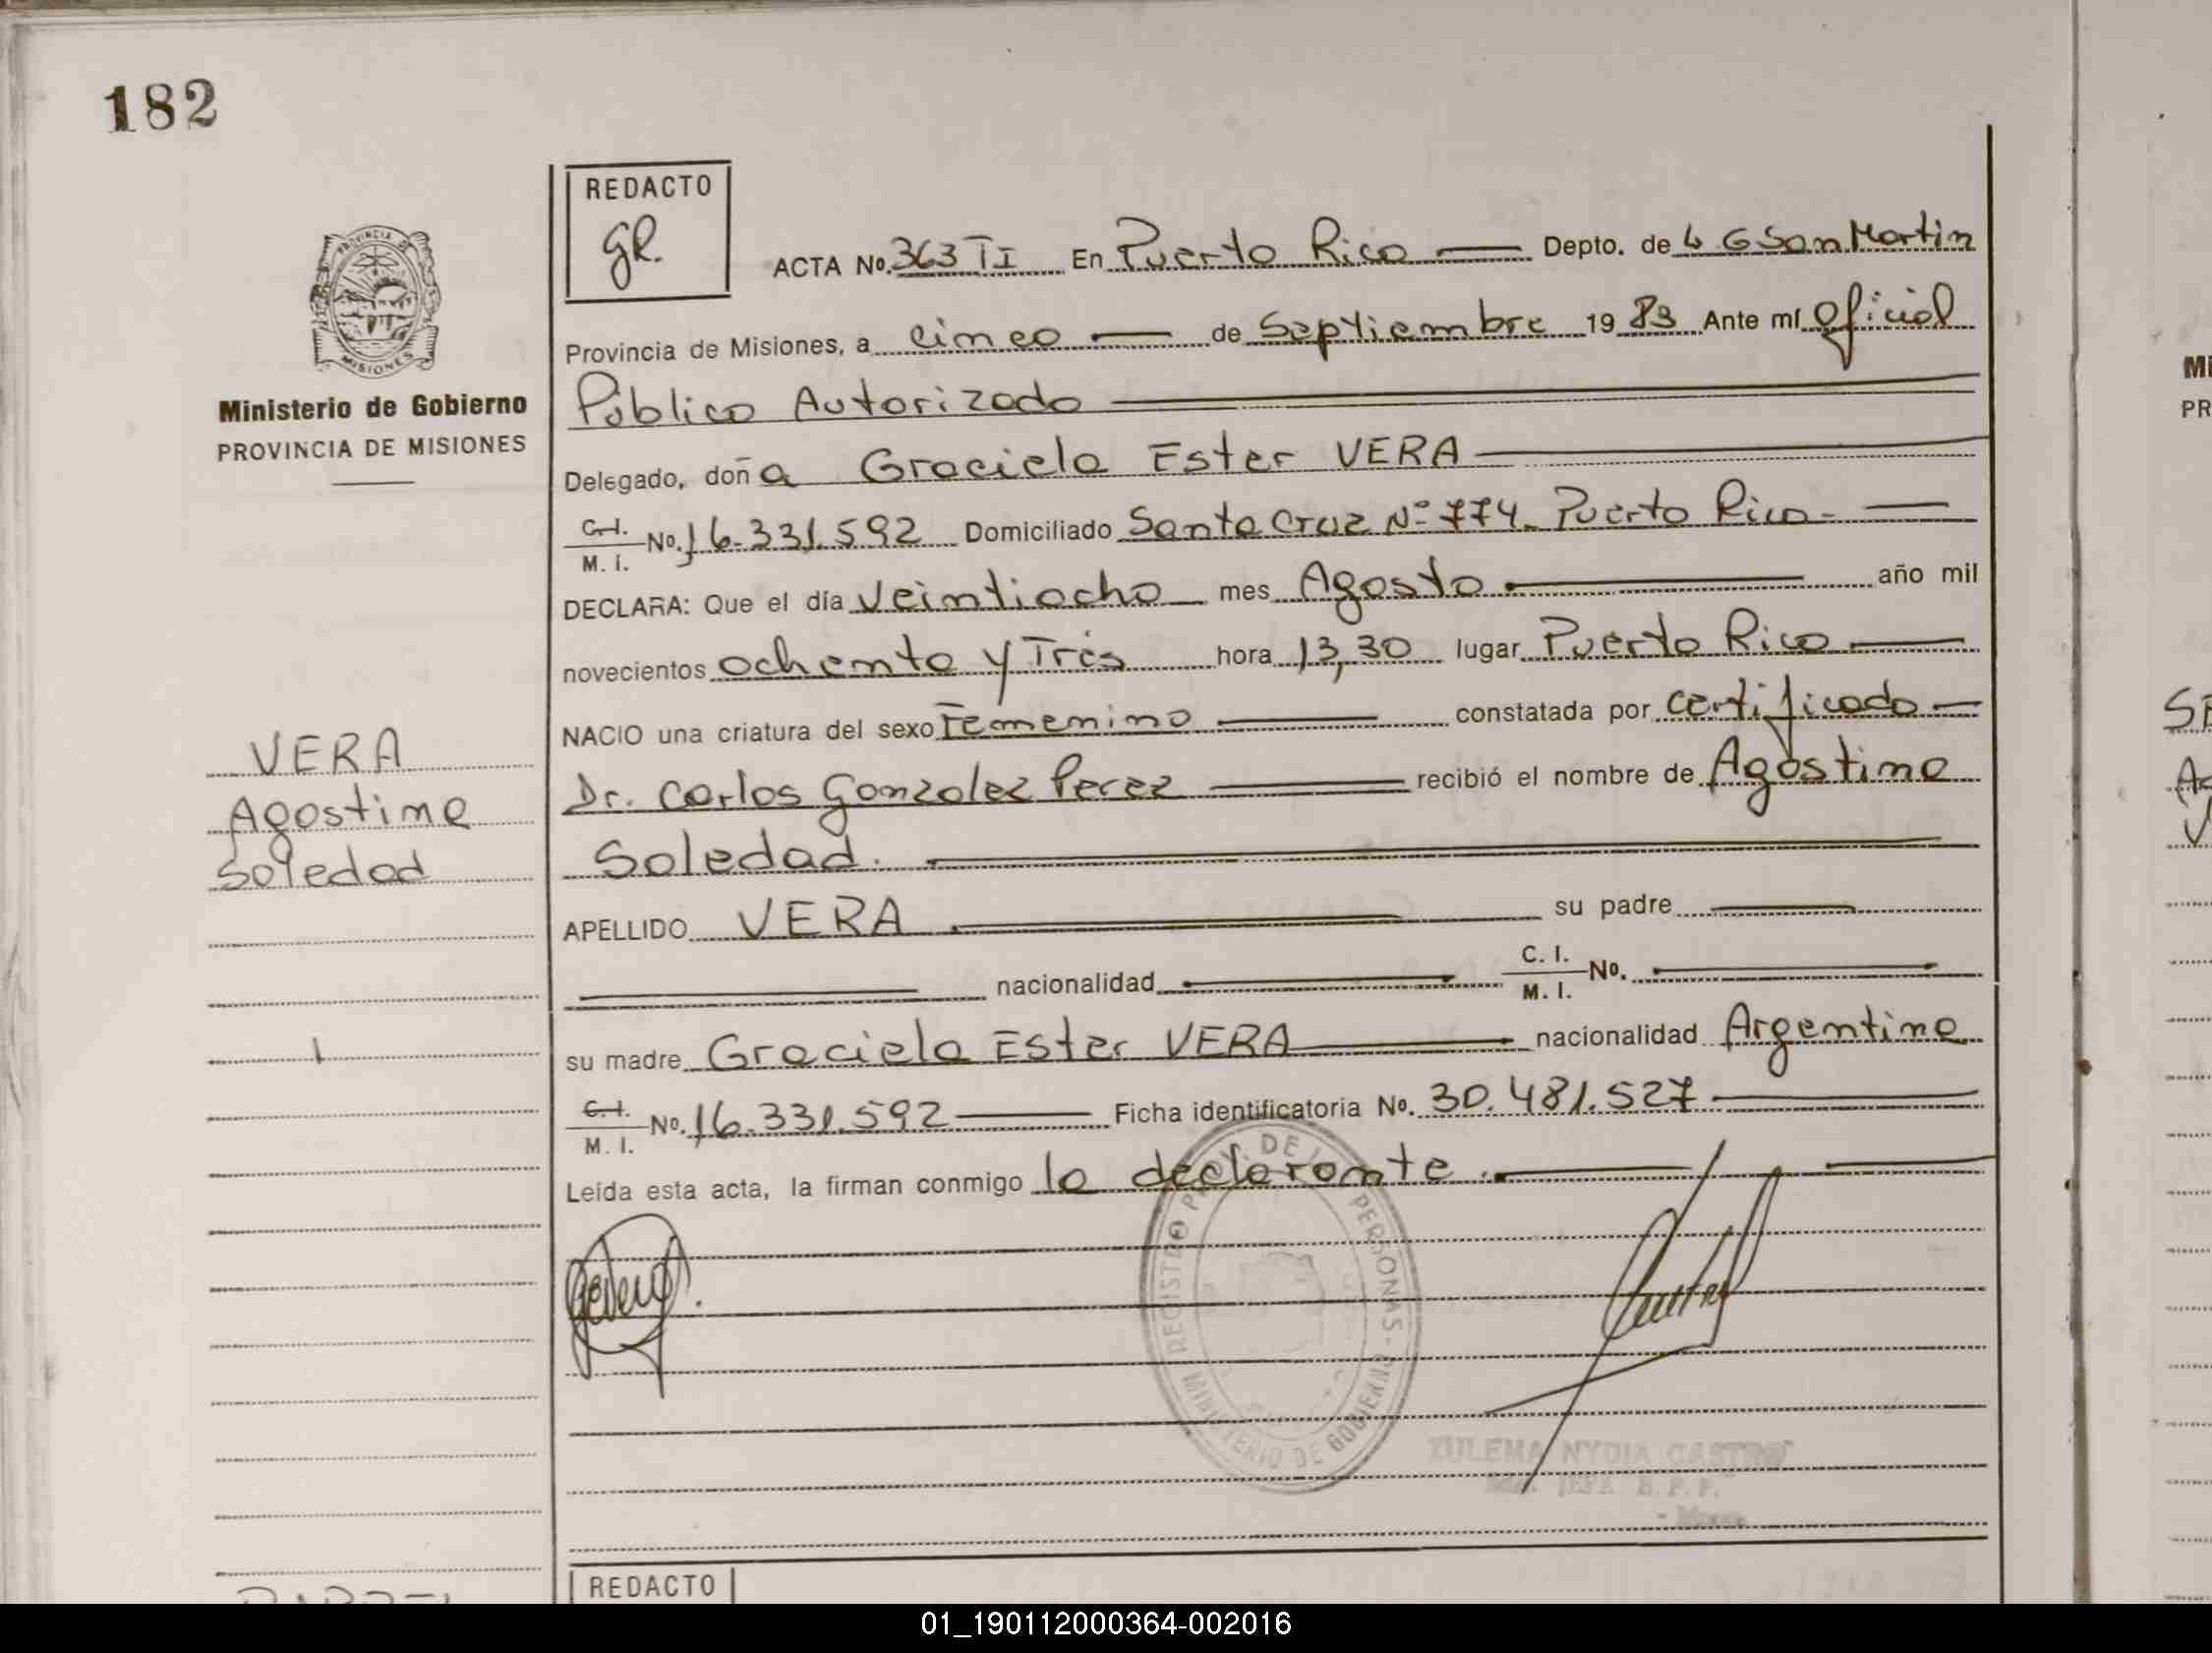 182
REDACTO
gR.
ACTA No. 363 TI En Puerto Rico Depto. de L G San Martin
Provincia de Misiones, a cinco de Septiembre 19 83 Ante mí Oficial
Público Autorizado
Ministerio de Gobierno
PROVINCIA DE MISIONES
Delegado, doña Graciela Ester VERA
C.I. M. I. No. 16.331.592 Domiciliado Santa Cruz Nº 774. Puerto Rico
DECLARA: Que el día Veintiocho mes Agosto año mil
novecientos ochenta y Tres hora 13,30 lugar Puerto Rico
NACIO una criatura del sexo Femenino constatada por certificado
Dr. Carlos Gonzalez Perez recibió el nombre de Agostina
Soledad.
VERA
Agostina
Soledad
APELLIDO VERA su padre
nacionalidad C. I. M. I. No.
su madre Graciela Ester VERA nacionalidad Argentina
C.I. M. I. No. 16.331.592 Ficha identificatoria No. 30.481.527
Leída esta acta, la firman conmigo la declarante.
REGISTRO PROV. DE PERSONAS - MINISTERIO DE GOBIERNO
ZULEMA NYDIA CASTRO
REDACTO
01_190112000364-002016